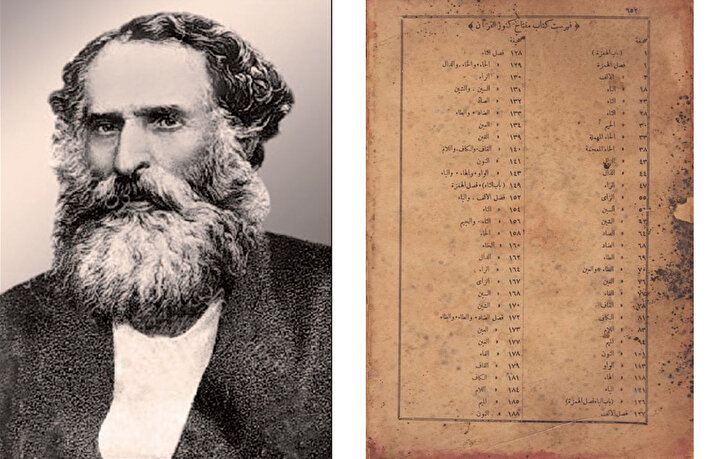 ٦٥٢
﴿ فهرست كتاب مفتاح كنوز القرآن ﴾
صحيفة
١ (باب الهمزة)
١ فصل الهمزة
٣ » الالف
١٨ » الباء
٢٣ » التاء
» الثاء
٣١ » الجيم
٣٣ » الحاء المهملة
٣٨ » الخاء المعجمة
٤٣ » الدال
٤٤ » الذال
٤٧ » الراء
٥٥ » الزاى
» السين
» الشين
» الصاد
٦٨ » الضاد
» الطاء
» الظاء والعين
» الغين
» الفاء
» القاف
٨١ » الكاف
٨٣ » اللام
٩٤ » الميم
١٠١ » النون
١١٣ » الواو
» الهاء
» الياء
(باب الباء فصل الهمزة)
١٣٧ فصل الالف
صحيفة
١٢٨ فصل الثاء
١٢٩ » الحاء والخاء والدال
١٣٠ » الراء
١٣١ » السين والشين
١٣٢ » الصاد
١٣٣ » الضاد والطاء
١٣٤ » العين
١٣٩ » الغين
١٤٠ » القاف والكاف واللام
١٤١ » النون
١٤٣ » الواو والهاء والياء
١٤٩ (باب التاء) فصل الهمزة
١٥٢ فصل الالف والباء
١٥٤ » التاء
١٥٦ » الثاء والجيم
١٥٨ » الحاء
١٦٠ » الخاء
١٦٢ » الدال
١٦٤ » الراء
١٦٧ » الزاى
١٦٨ » السين
١٧٠ » الشين
١٧٢ فصل الصاد والطاء والظاء
١٧٣ » العين
١٧٧ » الغين
١٧٨ » الفاء
١٧٩ » القاف
١٨١ » الكاف
١٨٤ » اللام
١٨٥ » الميم
١٨٨ » النون